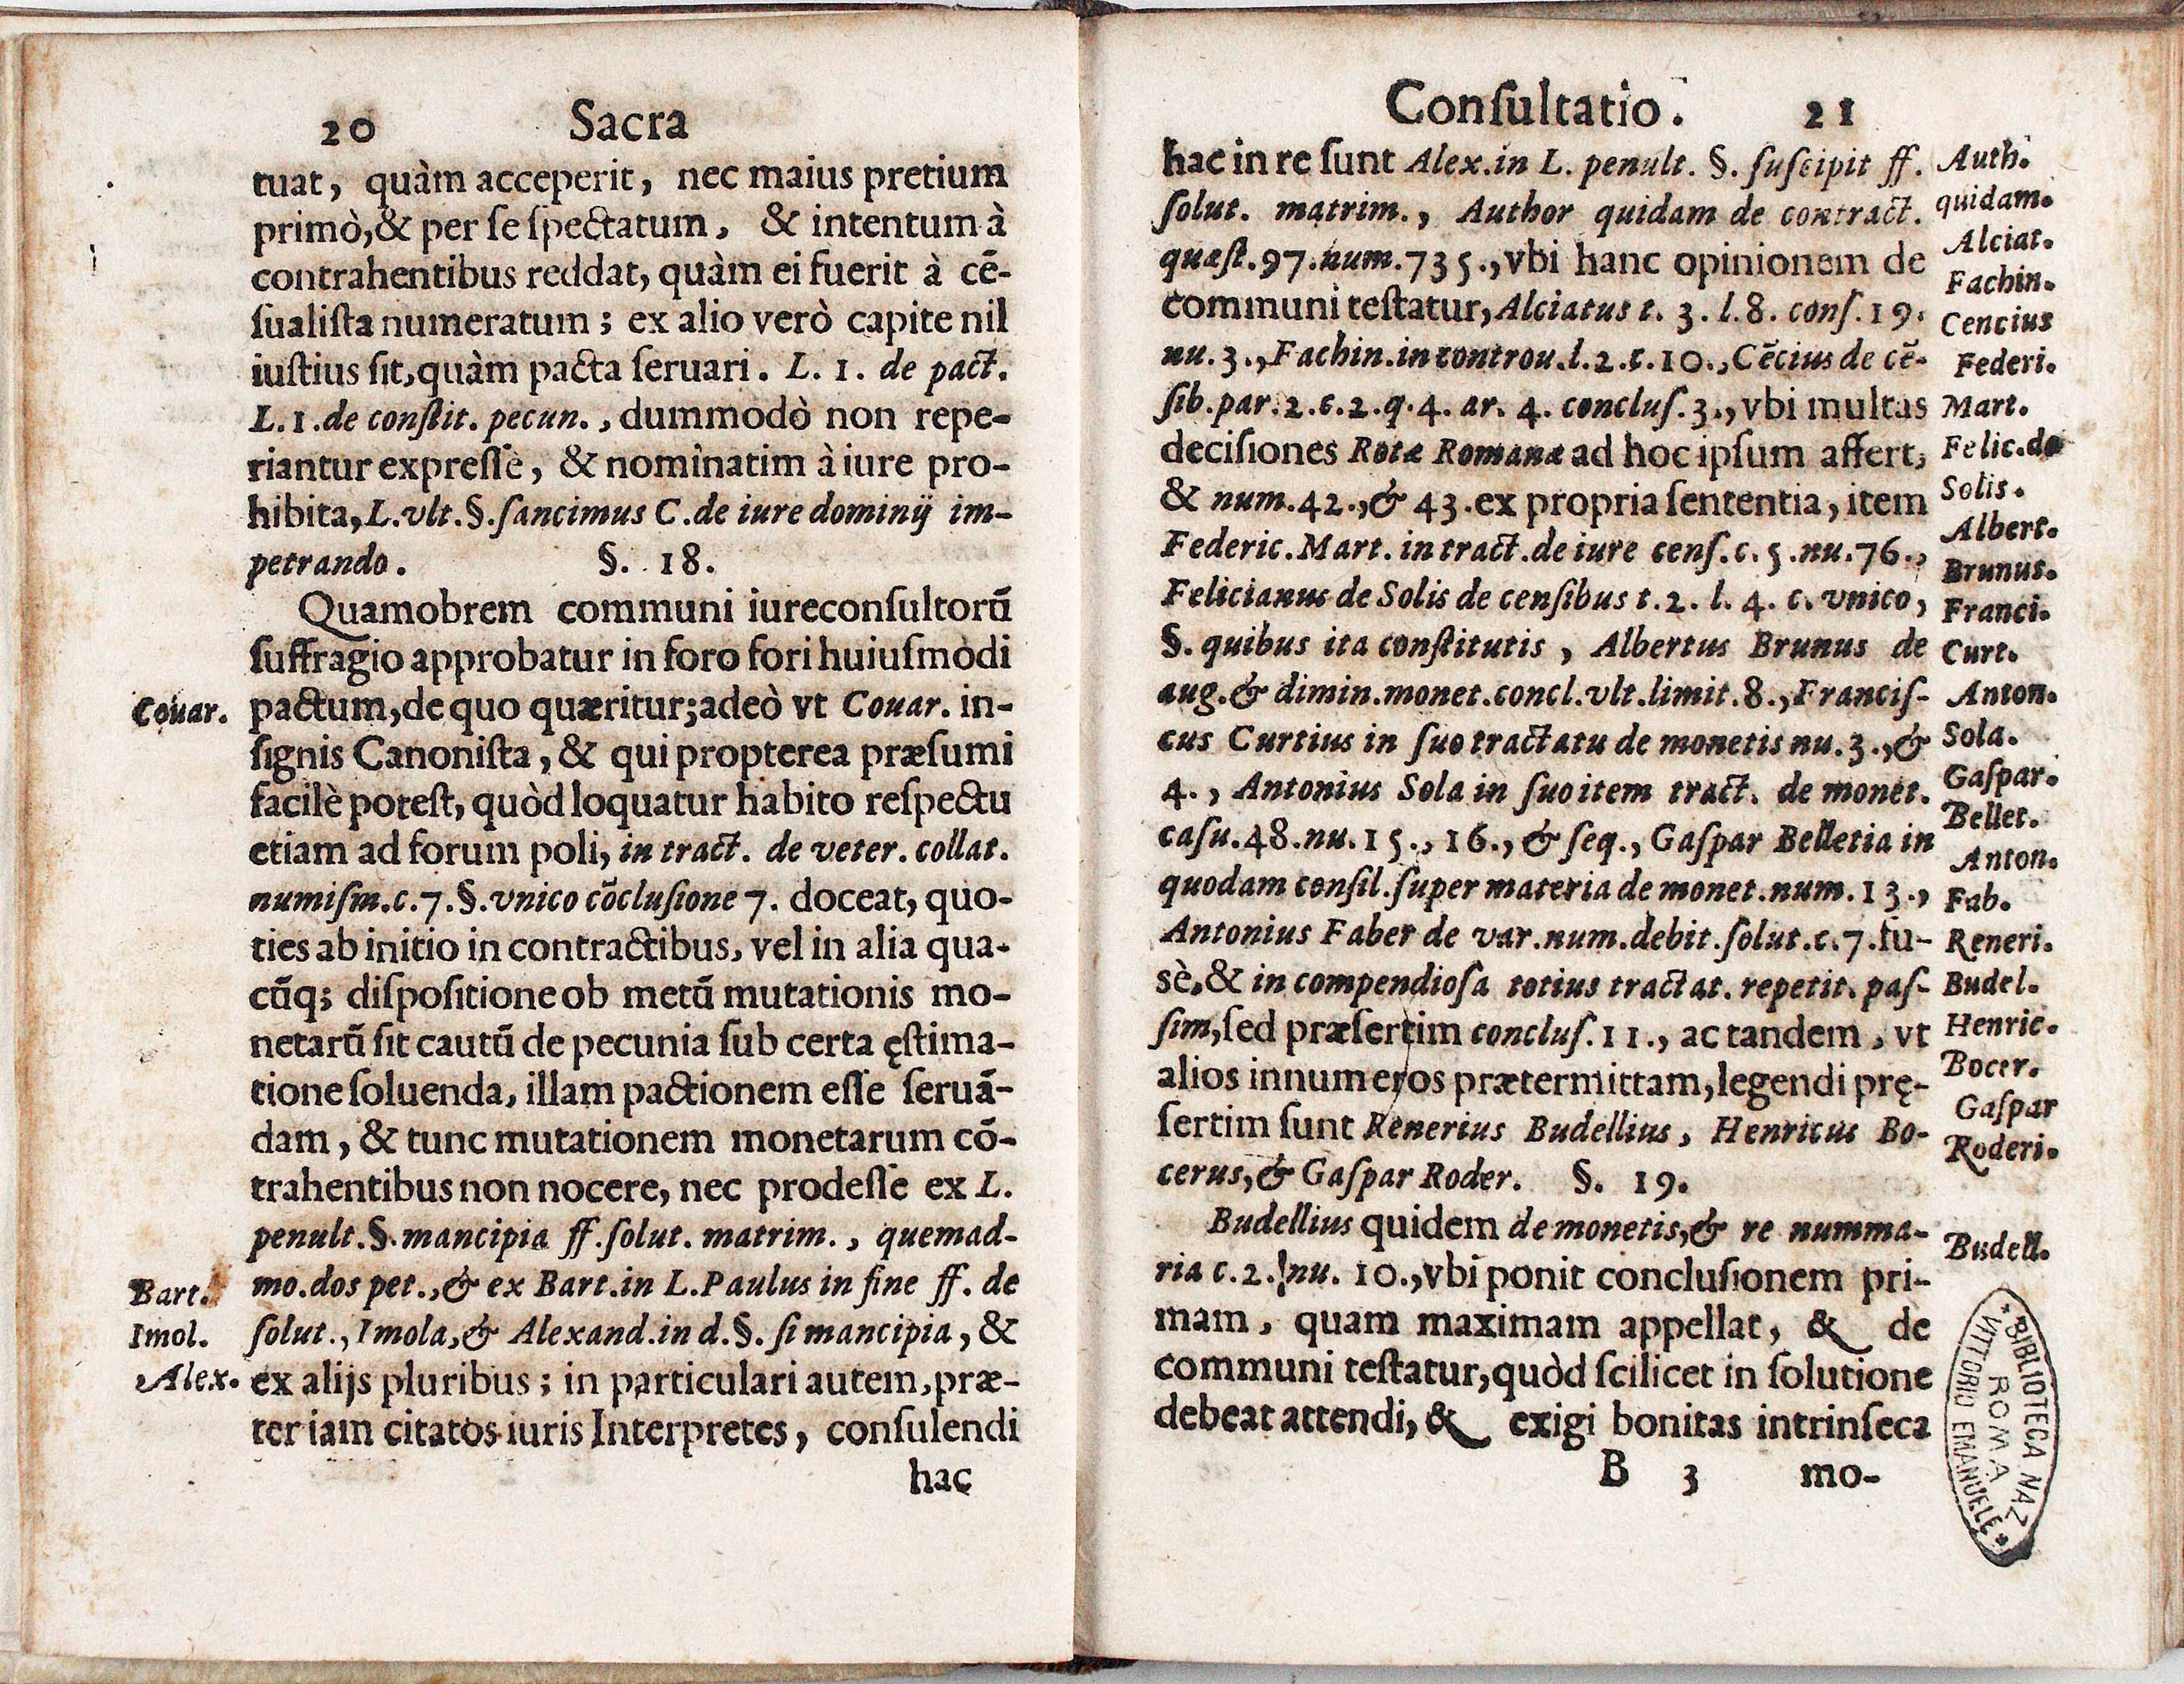 20 Sacra
tuat, quàm acceperit, nec maius pretium
primò,& per ſe ſpectatum, & intentum à
contrahentibus reddat, quàm ei fuerit à cẽ-
ſualiſta numeratum; ex alio verò capite nil
iuſtius ſit, quàm pacta ſeruari. L. 1. de pact.
L. 1. de conſtit. pecun., dummodò non repe-
riantur expreſsè, & nominatim à iure pro-
hibita, L. vlt. §. ſancimus C. de iure dominij im-
petrando. §. 18.
Quamobrem communi iureconſultorũ
ſuffragio approbatur in foro fori huiuſmodi
Couar. pactum, de quo quæritur; adeò vt Couar. in-
ſignis Canoniſta, & qui propterea præſumi
facilè poteſt, quòd loquatur habito reſpectu
etiam ad forum poli, in tract. de veter. collat.
numiſm. c. 7. §. vnico cõcluſione 7. doceat, quo-
ties ab initio in contractibus, vel in alia qua-
cũq; diſpoſitione ob metũ mutationis mo-
netarũ ſit cautũ de pecunia ſub certa ęſtima-
tione ſoluenda, illam pactionem eſſe ſeruã-
dam, & tunc mutationem monetarum cõ-
trahentibus non nocere, nec prodeſſe ex L.
penult. §. mancipia ff. ſolut. matrim., quemad-
Bart. mo. dos pet., & ex Bart. in L. Paulus in fine ff. de
Imol. ſolut., Imola, & Alexand. in d. §. ſi mancipia, &
Alex. ex alijs pluribus; in particulari autem, præ-
ter iam citatos iuris Interpretes, conſulendi
hac
Conſultatio. 21
hac in re ſunt Alex. in L. penult. §. ſuſcipit ff. Auth.
ſolut. matrim., Author quidam de contract. quidam.
quæſt. 97. num. 735., vbi hanc opinionem de Alciat.
communi teſtatur, Alciatus t. 3. l. 8. conſ. 19. Fachin.
nu. 3., Fachin. in controu. l. 2. c. 10., Cẽcius de cẽ- Cencius
ſib. par. 2. c. 2. q. 4. ar. 4. concluſ. 3., vbi multas Federi.
deciſiones Rotæ Romanæ ad hoc ipſum affert, Mart.
& num. 42., & 43. ex propria ſententia, item Felic. de
Federic. Mart. in tract. de iure cenſ. c. 5. nu. 76., Solis.
Felicianus de Solis de cenſibus t. 2. l. 4. c. vnico, Albert.
§. quibus ita conſtitutis, Albertus Brunus de Brunus.
aug. & dimin. monet. concl. vlt. limit. 8., Franciſ- Franci.
cus Curtius in ſuo tractatu de monetis nu. 3., & Curt.
4., Antonius Sola in ſuo item tract. de monet. Anton.
caſu. 48. nu. 15., 16., & ſeq., Gaſpar Belletia in Sola.
quodam conſil. ſuper materia de monet. num. 13., Gaſpar.
Antonius Faber de var. num. debit. ſolut. c. 7. fu- Bellet.
sè, & in compendioſa totius tractat. repetit. paſ- Anton.
ſim, ſed præſertim concluſ. 11., ac tandem, vt Fab.
alios innumeros prætermittam, legendi prę- Reneri.
ſertim ſunt Renerius Budellius, Henricus Bo- Budel.
cerus, & Gaſpar Roder. §. 19. Henric.
Bocer.
Gaſpar
Roderi.
Budellius quidem de monetis, & re numma- Budell.
ria c. 2. nu. 10., vbi ponit concluſionem pri-
mam, quam maximam appellat, & de
communi teſtatur, quòd ſcilicet in ſolutione
debeat attendi, & exigi bonitas intrinſeca
B 3 mo-
BIBLIOTECA NAZ
ROMA
VITTORIO EMANUELE